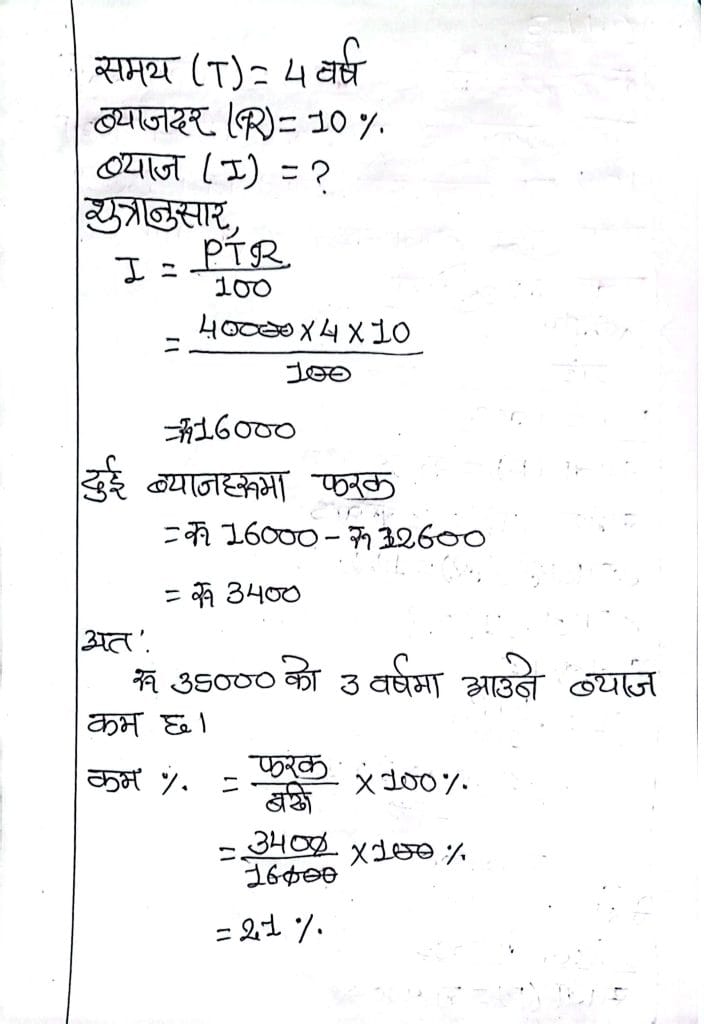 समय (T) = 4 वर्ष
ब्याजदर (R) = 10 %.
ब्याज (I) = ?
शुत्रानुसार,
I = PTR / 100
= 40000 × 4 × 10 / 100
= रु 16000
दुई ब्याजहरुमा फरक
= रु 16000 - रु 12600
= रु 3400
अत'.
रु 35000 को 3 वर्षमा आउने ब्याज
कम छ।
कम %. = फरक / बढी × 100%.
= 3400 / 16000 × 100 %
= 21 %.